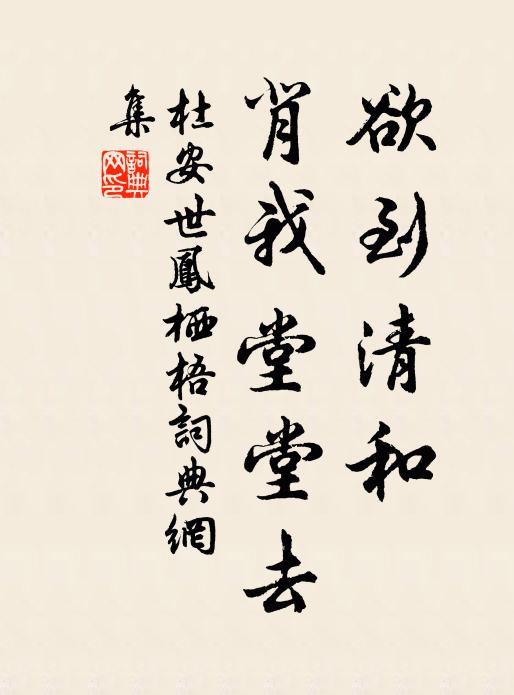 欲到清和
背我堂堂去
杜安世鳳栖梧詞典網
集
詞典
网印